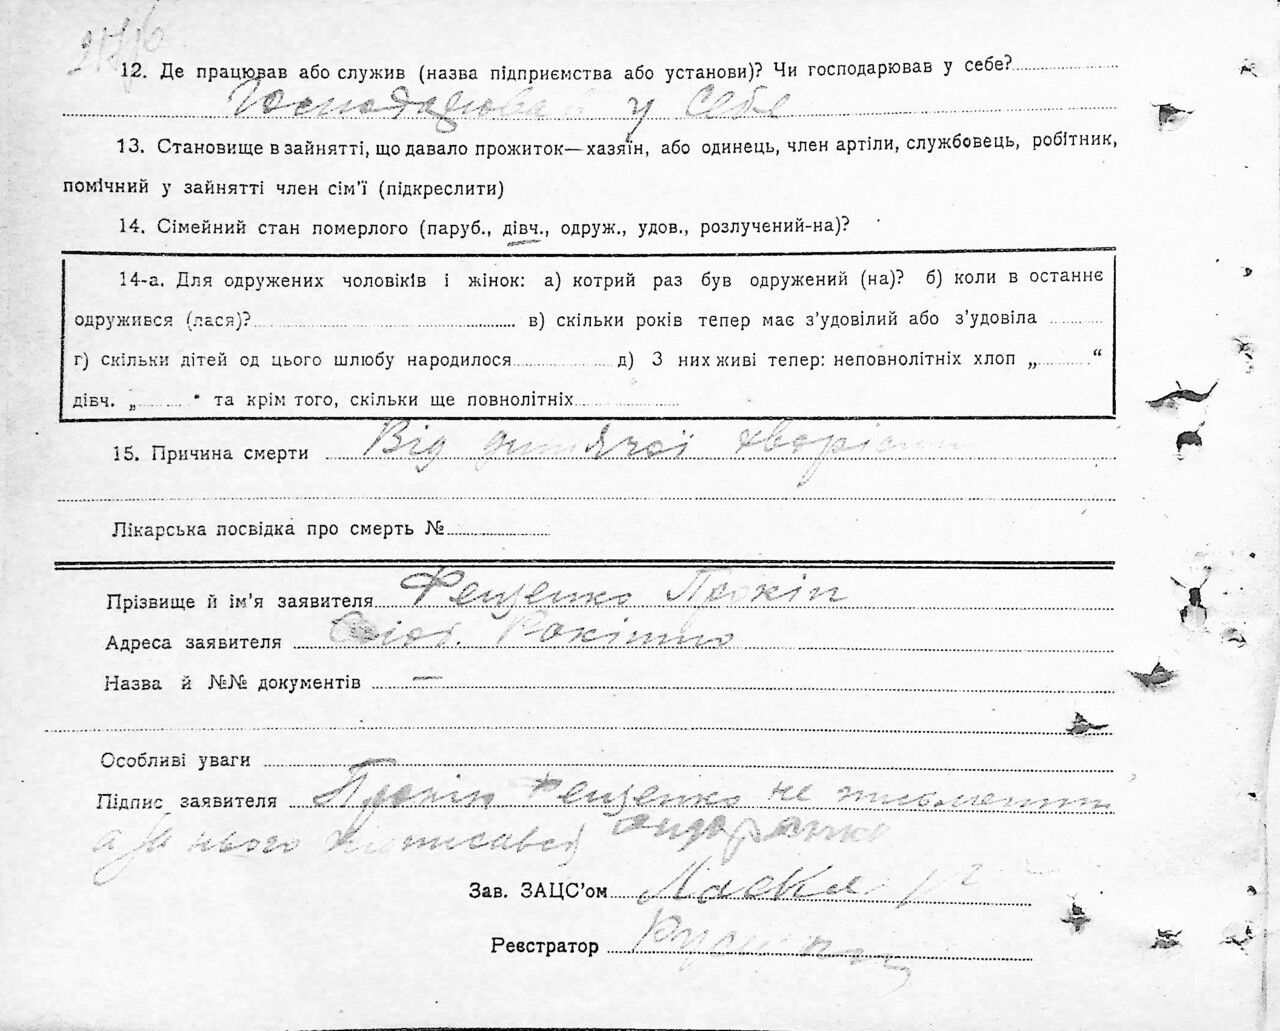 12. Де працював або служив (назва підприємства або установи)? Чи господарював у себе?
Господарював у себе
13. Становище в зайнятті, що давало прожиток—хазяїн, або одинець, член артіли, службовець, робітник,
помічний у зайнятті член сім'ї (підкреслити)
14. Сімейний стан померлого (паруб., дівч., одруж., удов., розлучений-на)?
14-а. Для одружених чоловіків і жінок: а) котрий раз був одружений (на)? б) коли в останнє
одружився (лася)? в) скільки років тепер має з'удовілий або з'удовіла
г) скільки дітей од цього шлюбу народилося д) З них живі тепер: неповнолітніх хлоп „ “
дівч. „ " та крім того, скільки ще повнолітніх
15. Причина смерти Від дитячої хворісти
Лікарська посвідка про смерть №
Прізвище й ім'я заявителя Фещенко Прокіп
Адреса заявителя Рокітно
Назва й №№ документів —
Особливі уваги
Підпис заявителя Прокіп Фещенко не письменний
а за нього підписався
Зав. ЗАЦС'ом
Реєстратор